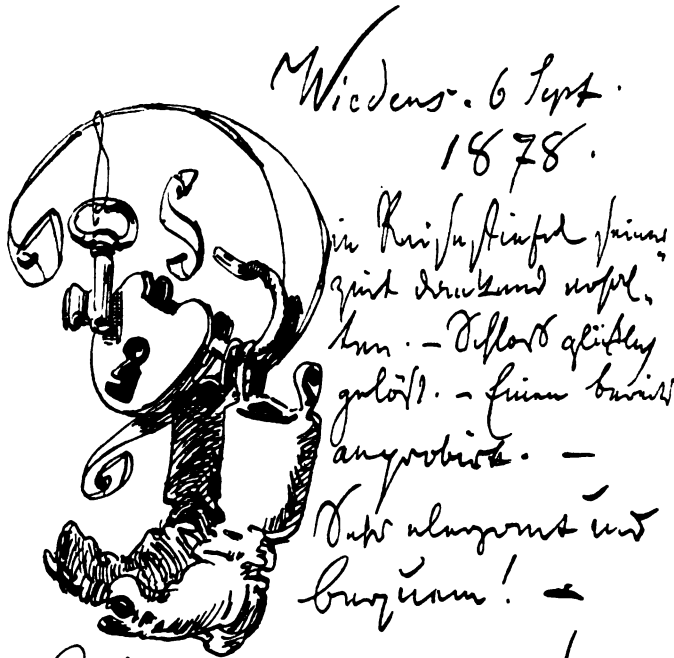 Wiedens. 6 Sept.
1878.
Reisestiefel seiner
zeit dankend erhal„
ten. – Schloß glücklich
gelöst. – Einen bereits
anprobirt. –
Sehr elegant und
bequem! –